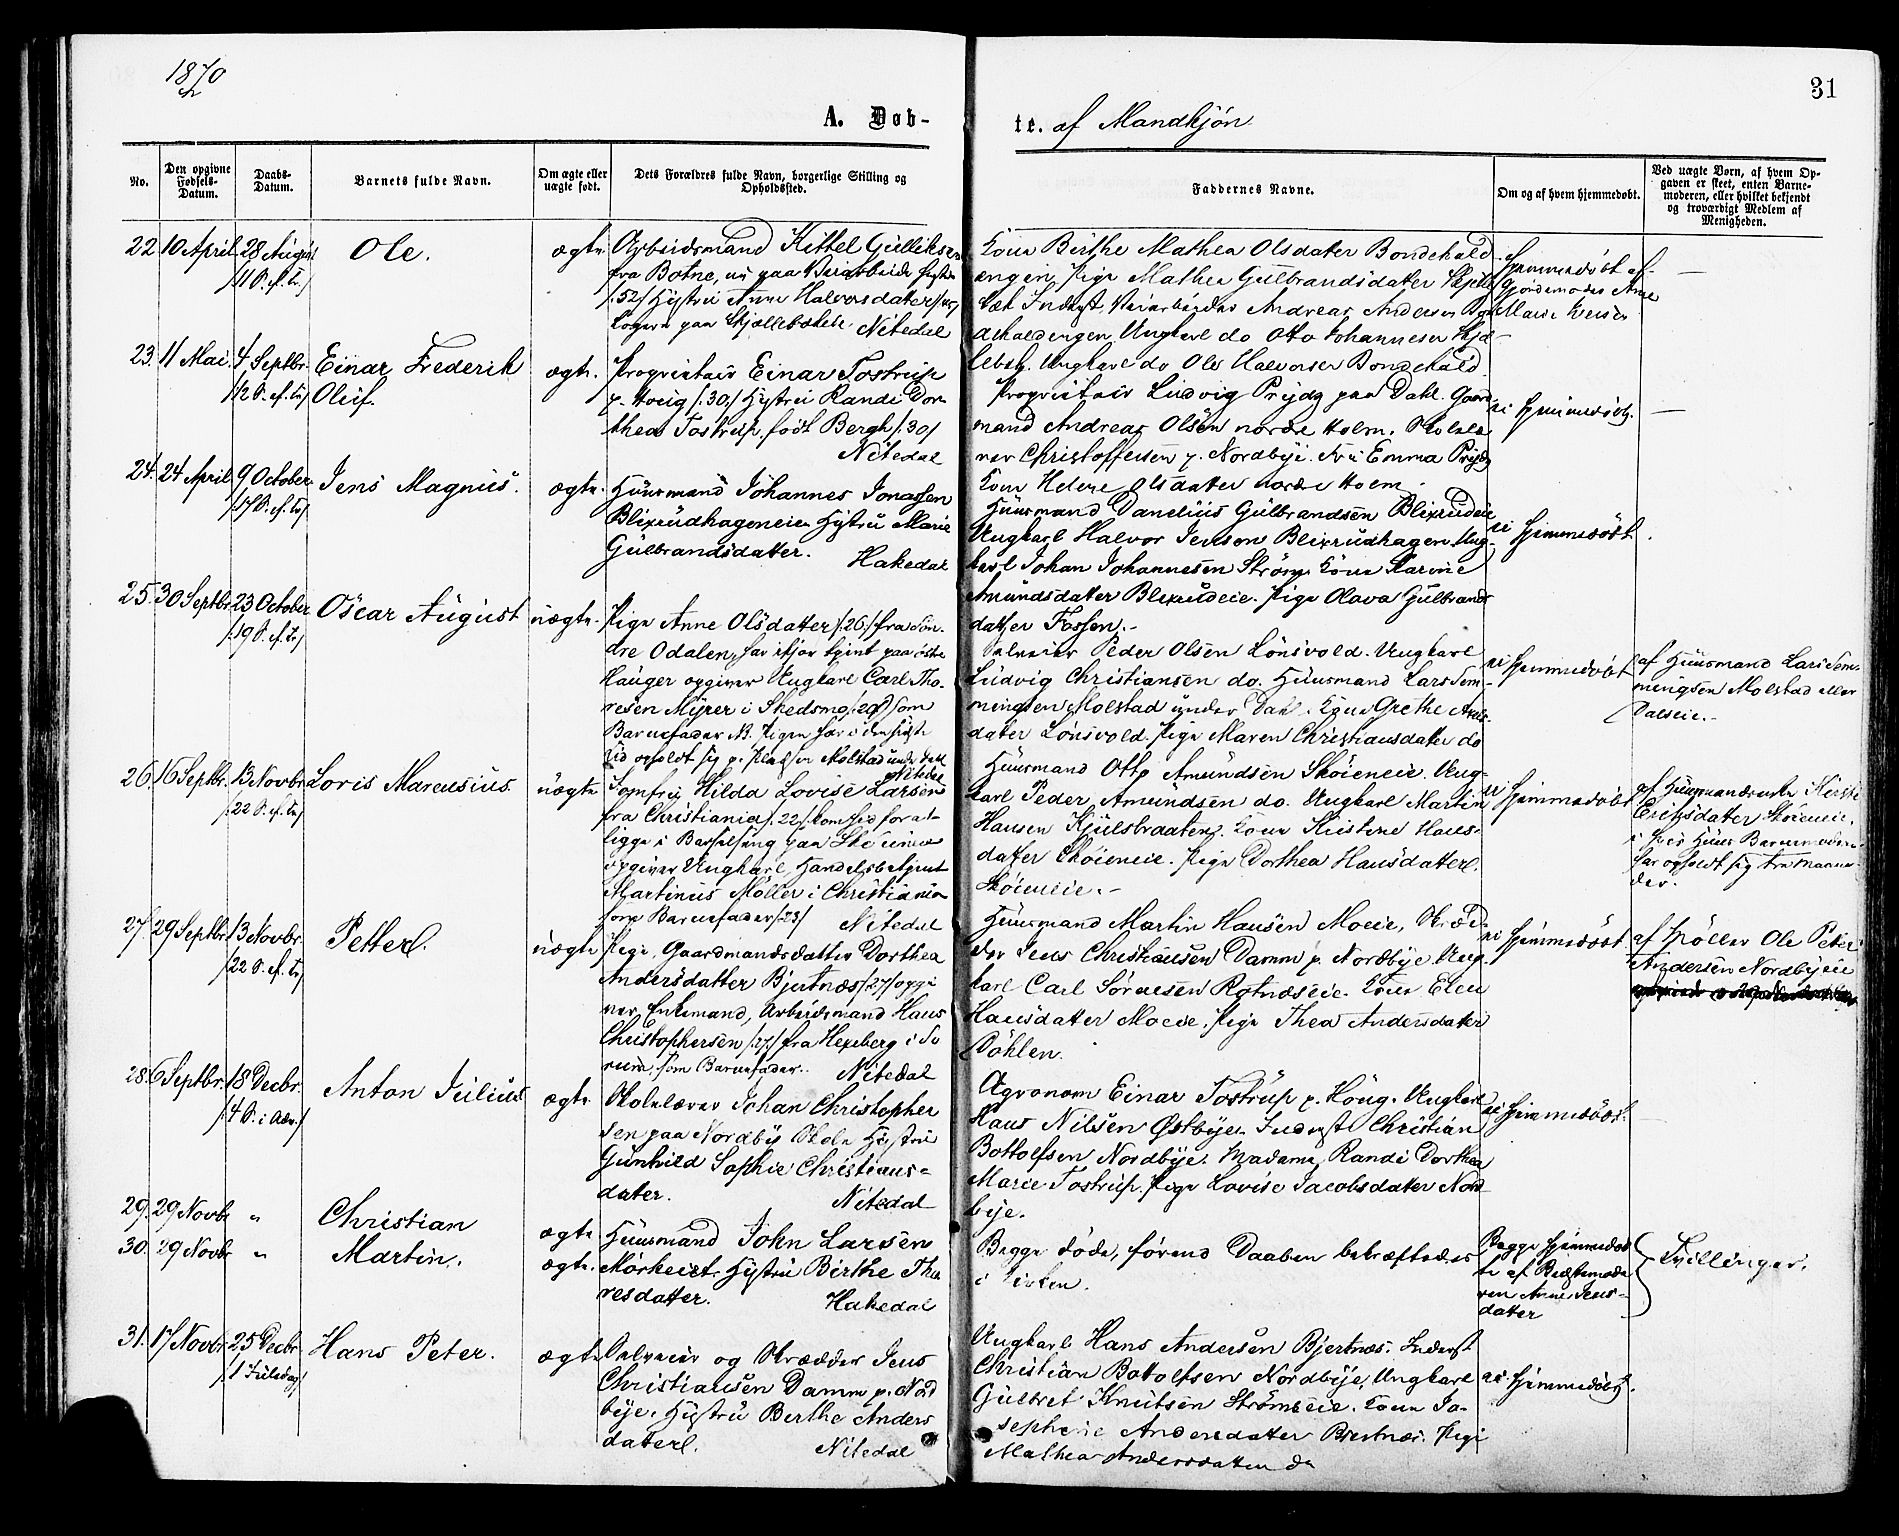 1870
31
A. Døb-
te. af Mandkjøn
No.
Den opgivne Fødsels-Datum.
Daabs-Datum.
Barnets fulde Navn.
Om ægte eller uægte født.
Dets Forældres fulde Navn, borgerlige Stilling og Opholdssted.
Faddernes Navne.
Om og af hvem hjemmedøbt.
Ved uægte Børn, af hvem Op-
gaven er skeet, enten Barne-
moderen, eller hvilket bekjendt
og troværdigt Medlem af
Menigheden.
22 10 April 28 August
11 S. ef. Tr.
Ole.
ægte
Arbeidsmand Kittel Gulliksen
fra Botne, nu paa
52 Hustru Anne Halvorsdatter
Logere paa Skjællebækeie. Nitedal
Kone Birthe Mathea Olsdater Bondehald
engen, Pige Mathea Gulbrandsdater Skjelle
bæk Inderst, Andreas Andersen
Ungkarl do Otto Johannesen Skjæ
lebek. Ungkarl do Ole Halvorsen Bondehald
Hjemmedøbt af
Gjordemoder Anne
Marie
—
23. 11 Mai. 4 Septbr.
12 S. ef. Tr.
Einar Frederik
Oluf.
ægte.
Proprietair Einar Tostrup
p. Houg /:30:/ Hustru Randi Dor-
thea Tostrup, født Bergh /:30/
Nitedal
Proprietair Ludvig Prydz paa Dahl. Gaard
mand Andreas Olsen nordre Holm. Skolelæ
rer Christoffersen p. Nordbye. Fru Emma Prydz
Kone Helene Olsdatter nordre Holm.
ei hjemmedøbt.
—
24. 24 April 9 October
17 S. ef. Tr.
Jens Magnus.
ægte.
Huusmand Johannes Jonassen
Blixrudhageneie. Hustru Marie
Gulbrandsdatter.
Hakedal
Huusmand Danelius Gulbrandsen Blixrudeie
Ungkarl Halvor Jensen Blixrudhagen. Ung-
karl Johan Johannesen Strøm. Kone Karine
Amundsdatter Blixrudeie. Pige Olava Gulbrands
datter Fossen.-
ei hjemmedøbt.
25. 30 Septbr. 23 October
19 S. ef. Tr.
Oscar August
uægte.
Pige Anne Olsdatter /:26:/ fra Søn-
dre Odalen, har tjent paa østre
Hauger opgiver Ungkarl Carl Tho-
resen Myrer i Skedsmo /:29/ som
Barnefader NB. Pigen har i den sidste
Tid opholdt sig p. Pladsen Molstad under Dahl
Nitedal
Peder Olsen Lønsvold. Ungkarl
Ludvig Christiansen do. Huusmand Lars Sem-
mingsen Molstad under Dahl. Kone Grethe
dater Lønsvold. Pige Maren Christiansdater do
ei hjemmedøbt
af Huusmand Lars Sem-
mingsen Molstad eller
Dalseie.-
26. 16 Septbr. 13 Novbr.
22 S. ef. Tr.
Loris Marcusius.
uægte
Jomfru Hilda Lovise Larsen
fra Christiania /:22/ kom hid for at
ligge i Barselseng paa
opgiver Ungkarl, Handelsbetjent
Martinus Møller i Christiania
som Barnefader /:23/ Nitedal
Huusmand Otto Amundsen Skøieneie. Ung-
karl Peder Amundsen do. Ungkarl Martin
Hansen Kjulsbraaten. Kone Kirstene Hans-
datter Skøieneie. Pige Dorthea Hansdatter.
Skøieneie.-
ei hjemmedøbt
af Huusmandsenke Kirsti
Eriksdatter Skøieneie,
i hvis Huus Barnemoderen
har opholdt sig tre Maane
der.
27. 29 Septbr. 13 Novbr.
22 S. ef. Tr.
Petter.
uægte
Pige, Gaardmandsdatter Dorthea
Andersdatter Bjertnæs /:27/ opgi
ver Enkemand, Arbeidsmand Hans
Christophersen fra Hexeberg i Sø
rum, som Barnefader. Nitedal
Huusmand Martin Hansen Moeie, Skræd-
der Jens Christiansen Damm p. Nordbye Ung-
karl Carl Sørensen Rotnæseie. Kone Elen
Hansdatter Moeie. Pige Thea Andersdater
Døhlen.
ei hjemmedøbt
af Møller Ole Peter
Andersen Nordbyeie
28. 6 Septbr. 18 Decbr.
4 S. i Adv.
Anton Julius
ægte
Skolelærer Johan Christopher
sen paa Nordby Skole Hustru
Gunhild Sophie Christians-
dater.
Nitedal
Agronom Einar Tostrup p. Houg. Ungkarl
Hans Nilsen Østbye. Inderst Christian
Bottolfsen Nordbye. Madame Randi Dorthea
Marie Tostrup. Pige Lovise Jacobsdater Nord
bye.
ei hjemmedøbt.
29. 29 Novbr "
Christian
ægte
30. 29 Novbr "
Martin.
ægte.
Huusmand John Larsen
Mørkeiet. Hustru Birthe Tho
resdatter.
Hakedal
Begge døde, førend Daaben bekræftedes
i Kirken.
Begge hjemmedøb
te af Bedstemode
ren Anne Jens-
datter
Tvillinger.
31. 17 Novbr 25 Decbr.
1 Juledag
Hans Peter.
ægte
Selveier og Skrædder Jens
Christiansen Damm p. Nord
bye. Hustru Berthe Anders
dater.
Nitedal
Ungkarl Hans Andersen Bjertnæs. Inderst
Christian Bottolfsen Nordbye, Ungkarl
Gulbret Knutsen Strømseie. Kone Jo-
sephine Andersdater Bjertnæs. Pige
Mathea Andersdatter do
ei hjemmedøbt.